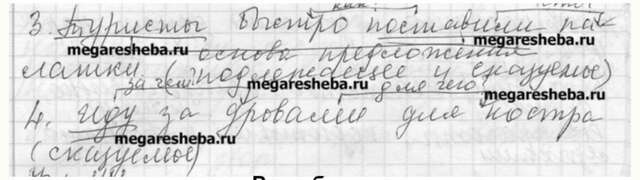 как?
3. Туристы быстро поставили па-
megaresheba.ru
основа предложения megaresheba.ru
латки (подлежащее и сказуемое)
за чем megaresheba.ru для чего
4. Иду за дровами для костра
megaresheba.ru
(сказуемое)